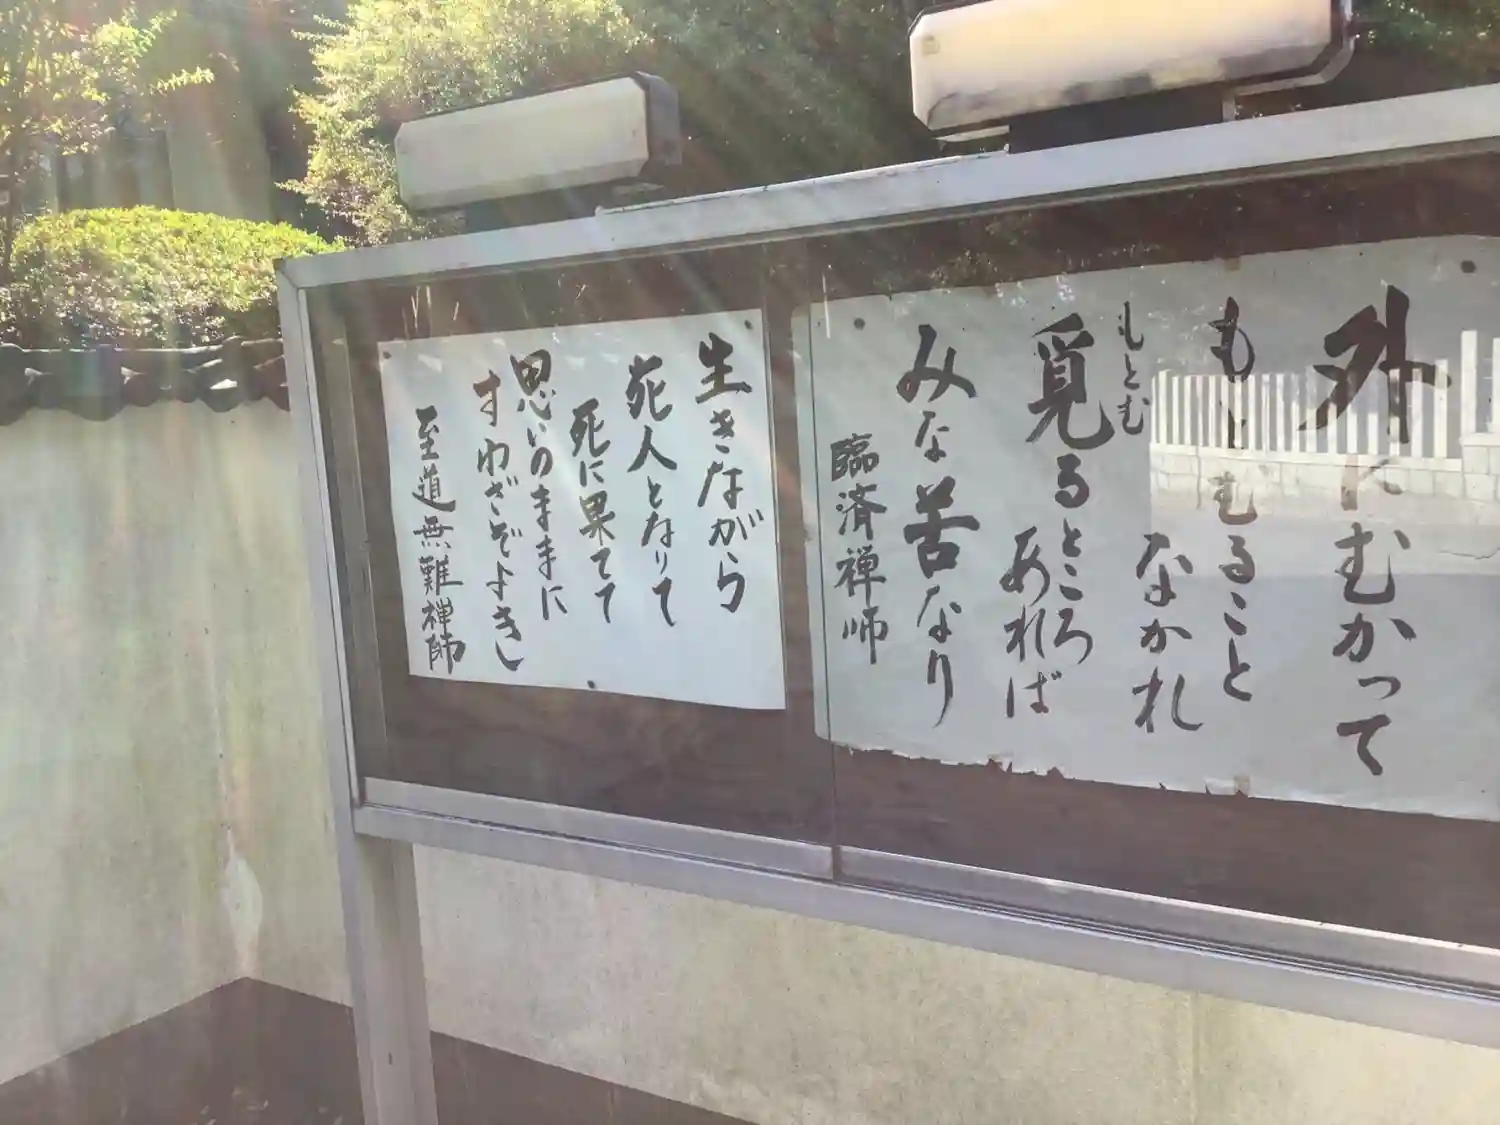 外にむかって
もとむること
なかれ
覓るところ
もとむ
あれば
みな苦なり
臨済禅師
生きながら
死人となりて
死に果てて
思いのままに
すわざぞよき
至道無難禅師